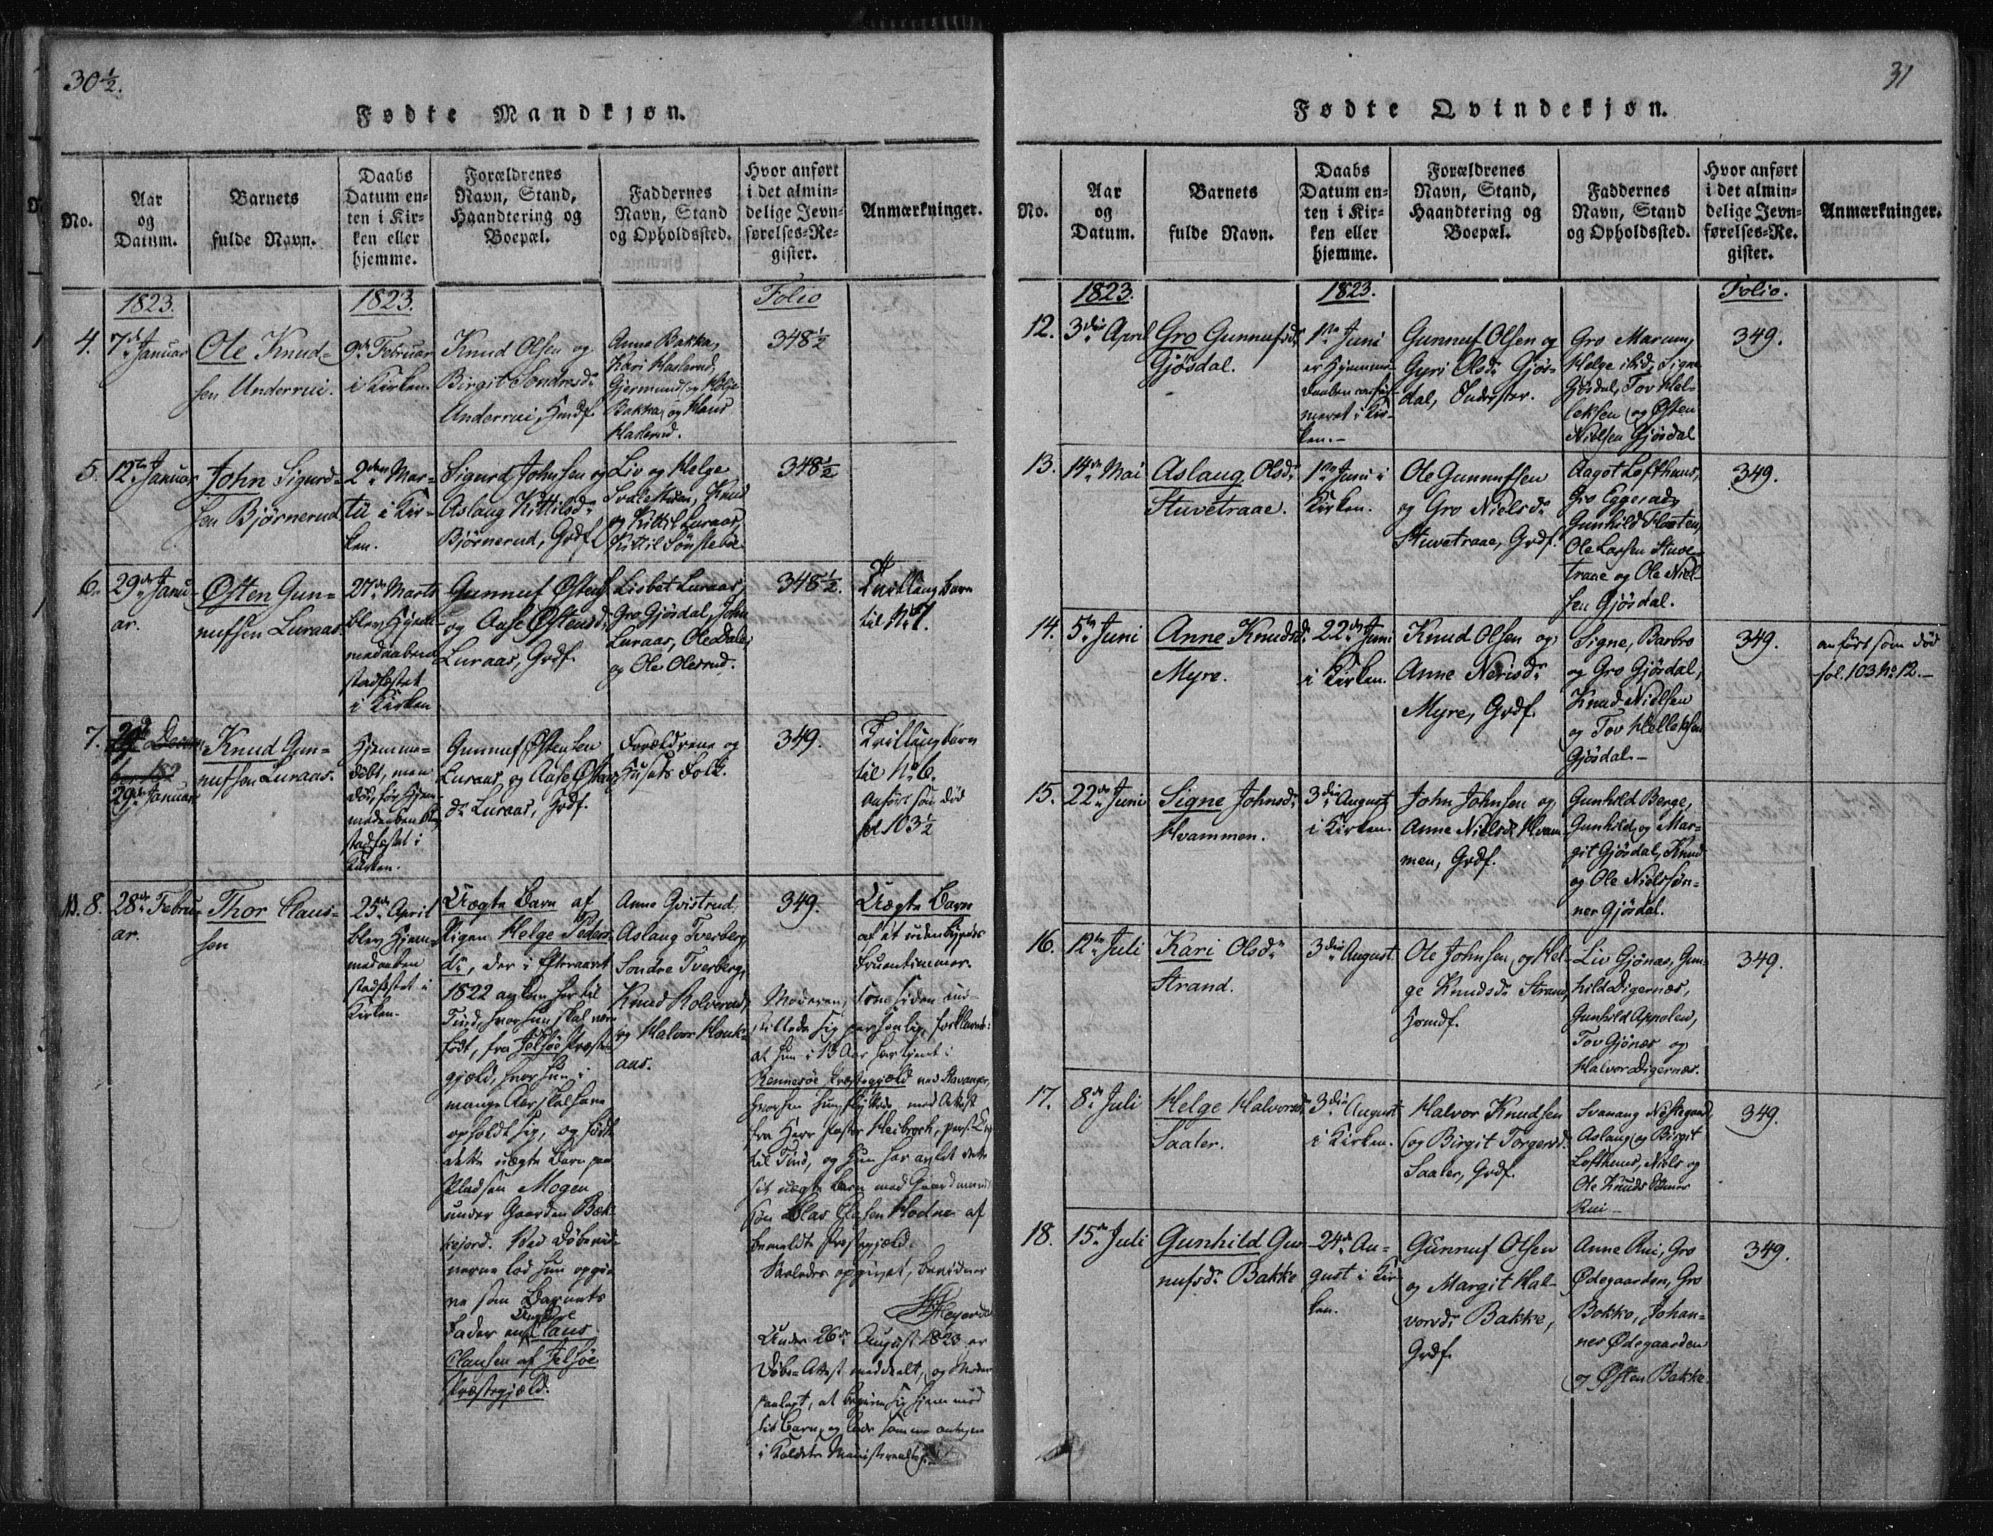 30½.
Fødte Mandkjøn.
No.
Aar
og
Datum.
Barnets
fulde Navn.
Daabs
Datum en-
ten i Kir-
ken eller
hjemme.
Forældrenes
Navn, Stand,
Haandtering og
Boepæl.
Faddernes
Navn, Stand
og Opholdssted.
Hvor anført
i det almin-
delige Jevn-
førelses-Re-
gister.
Anmærkninger.
1823.
1823.
Folio
4.
7de Januar
Ole Knud-
sen Underrui.
9de Februar
i Kirken.
Knud Olsen og
Birgit Sondresdr
Underrui, Hmdf.
Anne Bakka,
Kari Haslerud,
Gjermund og Helge
Bakka, og Hans
Haslerud.
348½
5.
12te Januar
John Sigurd-
sen Bjørnerud
2den Mar-
tii i Kir-
ken.
Sigurd Johnsen og
Aslaug Kittilsdr
Bjørnerud, Grdf.
Liv og Helge
Knud
og Kittil Luraas,
Kittil Sønstebøe
348½
6.
29de Janu-
ar.
Østen Gun-
nufsen Luraas.
27de Marts
blev Hjem-
medaaben
stadfæstet
i Kirken
Gunnuf Østens.
og Aase Østensdr
Luraas, Grdf.
Lisbet Luraas,
Gro Gjøsdal, John
Luraas, Ole Dale,
og Ole Olesrud.
348½.
Tvillingbarn
til No 7.
7.
29de Januar
Knud Gun-
nufsen Luraas.
Hjemme-
døbt, men
døde, før Hjem-
medaaben blev
stadfæstet i
Kirken.
Gunnuf Østensen
Luraas, og Aase Østens-
dr Luraas, Grdf.
Forældrene og
Husets Folk.
349.
Tvillingbarn
til No 6.
Anført som død
fol 103½
8.
28de Febru-
ar.
Thor Claus-
sen
25de April
blev Hjem-
medaaben
stadfæstet i
Kirken.
Uægte Barn af
Pigen Helge Peders-
dr, der i Efteraaret
1822 ankom her til
Tind, hvor hun skal være
født, fra Jelsøe Præste-
gjæld, hvor hun i
mange Aar skal have
opholdt sig, og født
dette uægte Barn paa
Pladsen Mogen
under Gaarden Bæk-
kejord. Ved Døbe
lod hun opgi-
ve som Barnets
Fader Ungkarl Claus
Clausen af Jelsøe
Præstegjæld.
Anne Qvistrud
Aslaug Tverberg,
Sondre Tverberg,
Knud Rolverud,
og Halvor Hauk-
aas.
349.
Uægte Barn
af et udenbygdes
Fruentimmer.
Moderen, som siden ind-
stillede sig personlig, forklarede:
at hun i 13 Aar har tjent i
Rennesøe Præstegjæld ved Stavanger,
hvorfra hun flyttede med Attest
fra Herr Pastor Heibroch,
til Tind, og hun har avlet dette
sit uægte Barn med Gaardmands-
søn Clas Clasen Hodne af
bemeldte Præstegjæld.
Saaledes opgivet, bevidner
Under 26de August 1823 er
Døbe Attest meddeelt, og Moder
paalagt, at begive sig hjem med
sit Barn, og lade samme antegne
31
Fødte Qvindekjøn.
No.
Aar
og
Datum.
Barnets
fulde Navn.
Daabs
Datum en-
ten i Kir-
ken eller
hjemme.
Forældrenes
Navn, Stand,
Haandtering og
Boepæl.
Faddernes
Navn, Stand
og Opholdssted.
Hvor anført
i det almin-
delige Jevn-
førelses-Re-
gister.
Anmærkninger.
1823.
1823.
Folio.
12.
3die April
Gro Gunnufsdr
Gjøsdal.
1ste Juni
er Hjemme-
daaben confir-
meret i Kir-
ken.
Gunnuf Olsen og
Gyri Olsdr Gjøs-
dal, Inderster.
Gro Marum,
Helge ibid, Signe
Gjøsdal, Tov Hel-
leksen og Østen
Nielsen Gjøsdal
349.
13.
14de Mai
Aslaug Olsdr
Stuvetraae.
1ste Juni i
Kirken.
Ole Gunnufsen
og Gro Nielsdr
Stuvetraae, Grdf.
Aagot Lofthuus,
Gro Eggerud,
Gunhild Floten,
Ole Larsen Stuve-
traae og Ole Niel-
sen Gjøsdal.
349.
14.
5te Juni
Anne Knudsdr
Myre.
22de Juni
i Kirken.
Knud Olsen og
Anne Nerisdr
Myre, Grdf.
Signe, Barbro
og Gro Gjøsdal,
Knud Nielsen
og Tov Helleksen
Gjøsdal.
349.
anført som død
fol. 103 No 12.
15.
22de Juni
Signe Johnsdr
Hvammen.
3die August
i Kirken.
John Johnsen og
Anne Nielsdr Hvam-
men, Grdf.
Gunhild Berge,
Gunhild og Mar-
git Gjøsdal, Knud
og Ole Nielssøn-
ner Gjøsdal.
349.
16.
12te Juli
Kari Olsdr
Strand.
3die August
Ole Johnsen, og Hel-
ge Knudsdr Strand,
Hsmdf.
Liv Gjønæs, Gun-
hild Digernæs,
Gunhild Appolen,
Tov Gjønæs og
Halvor Digernæs.
349.
17.
8de Juli
Helge Halvorsdr
Saaler.
3die August
i Kirken.
Halvor Knudsen
og Birgit Torgersdr
Saaler, Grdf.
Svanaug Nestegard,
Aslaug og Birgit
Lofthuus, Niels og
Ole Knudssønner
Rui
349.
18.
15de Juli
Gunhild Gun-
nufsdr Bakke
24de Au-
gust i Kir-
ken.
Gunnuf Olsen
og Margit Hal-
vorsdr Bakke,
Grdf.
Anne Rui, Gro
Ødegaarden, Gro
Bakka, Johan-
nes Ødegaarden
og Østen Bakke.
349.